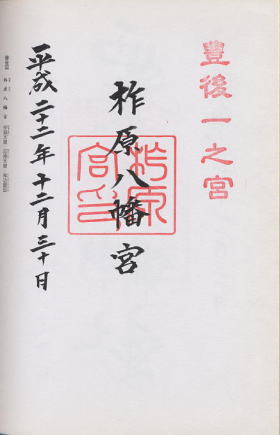 豊後一之宮
柞原八幡宮
柞原宮印
平成二十二年十二月三十日